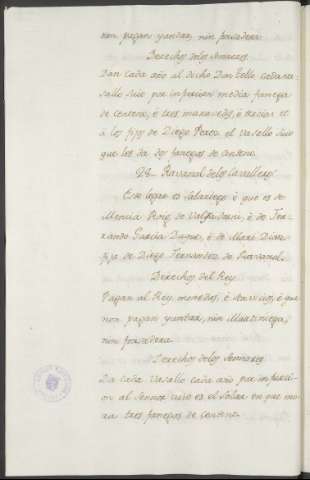 non pagan yantar, nin fonsadera.
Derechos delos Sennores
Dan cada año al dicho Don Tello cada va-
sallo suio por infurcion media fanega
de centeno, è tres maravedis, è
à los fijos de Diego Perez el vasallo suio
que les da dos fanegas de centeno.
28– Ravanal delos Cavalleros
Este logar es Solariego è que es de
Mencia Roiz de Valfadoni, è de Fer-
rando Garcia Duque, è de Mari Diaz
fija de Diego Fernandez de Ravanal.
Derechos del Rey
Pagan al Rey monedas, è servicios, è que
non pagan yantar, nin Martiniega,
nin fonsadera.
Derechos delos Sennores
Da cada vasallo cada año por infurci-
on al Sennor cuio es el Solar en que mo-
ra tres fanegas de centeno.